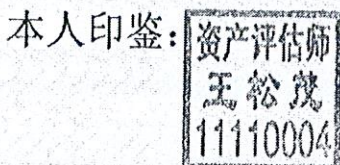 本人印鉴:
资产评估师
王松茂
11110004